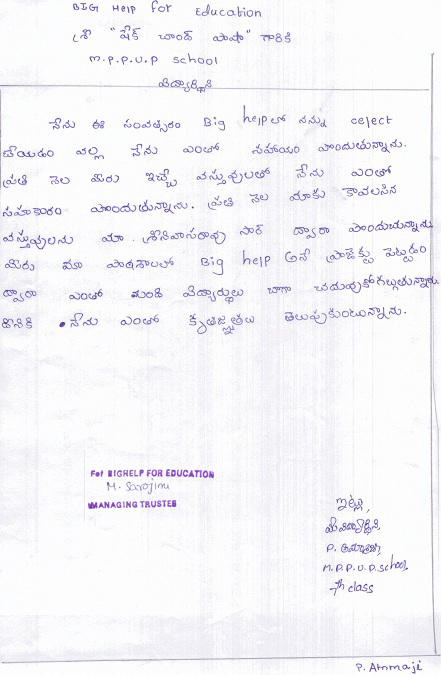 BIG Help for Education
శ్రీ "షేక్ చాంద్ పాషా" గారికి
M.P.P.U.P School
విద్యార్థిని
నేను ఈ సంవత్సరం Big help లో నన్ను celect
చేయడం వల్ల నేను ఎంతో సహాయం పొందుతున్నాను.
ప్రతి నెల మీరు ఇచ్చే వస్తువులతో నేను ఎంతో
సహకారం పొందుతున్నాను. ప్రతి నెల మాకు కావలసిన
వస్తువులను మా శ్రీనివాసరావు సార్ ద్వారా పొందుచున్నాను.
మీరు మా పాఠశాలలో Big help అనే ప్రాజెక్టు పెట్టడం
ద్వారా ఎంతో మంది విద్యార్థులు బాగా చదువుకోగల్గుతున్నారు.
దీనికి నేను ఎంతో కృతజ్ఞతలు తెలుపుకుంటున్నాను.
For BIGHELP FOR EDUCATION
M. Sarojini
MANAGING TRUSTEE
ఇట్లు,
మీ విద్యార్థిని,
P.
M.P.P.U.P. School,
7th class
P. Atmaji